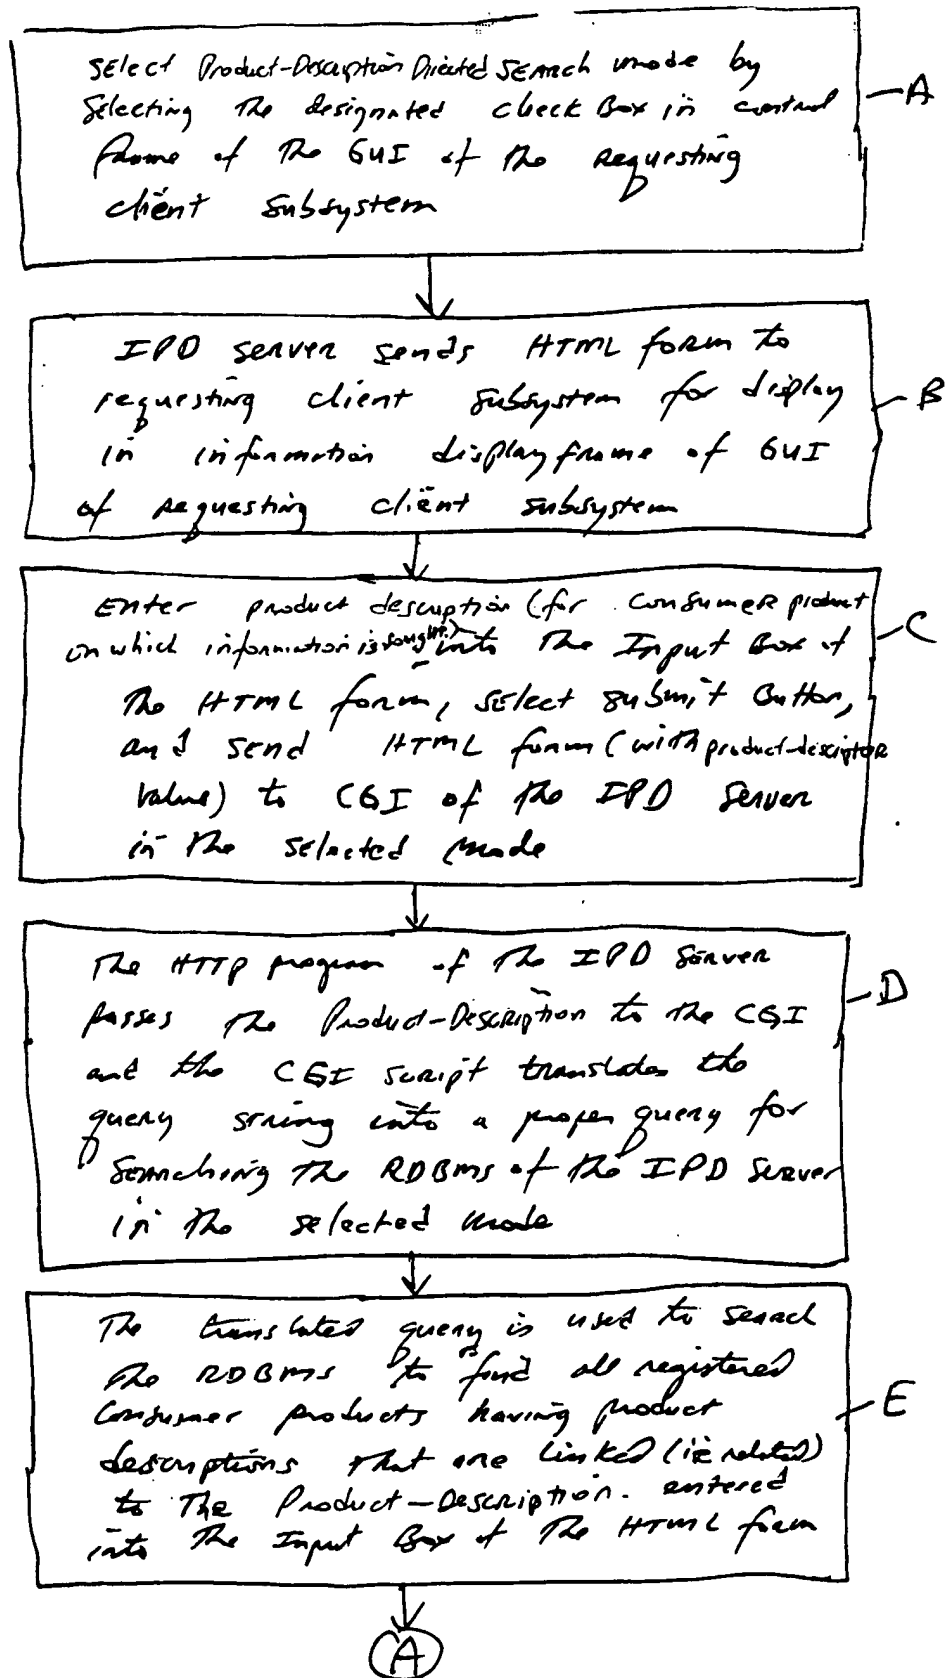 Select Product-Description Directed Search mode by
Selecting The designated check Box in control
frame of the GUI of the requesting
client subsystem
A
IPD server sends HTML form to
requesting client subsystem for display
in information display frame of GUI
of requesting client subsystem
B
Enter product description (for consumer product
on which information is sought) into The Input Box of
The HTML form, select submit Button,
and send HTML form (with product-descriptor
value) to CGI of the IPD Server
in the selected mode
C
The HTTP program of the IPD Server
passes the Product-Description to the CGI
and the CGI script translates the
query string into a proper query for
Searching the RDBMS of the IPD Server
in the selected mode
D
The translated query is used to search
The RDBMS to find all registered
Consumer products having product
descriptions that are linked (ie related)
to The Product-Description. entered
into The Input Box of The HTML form
E
A